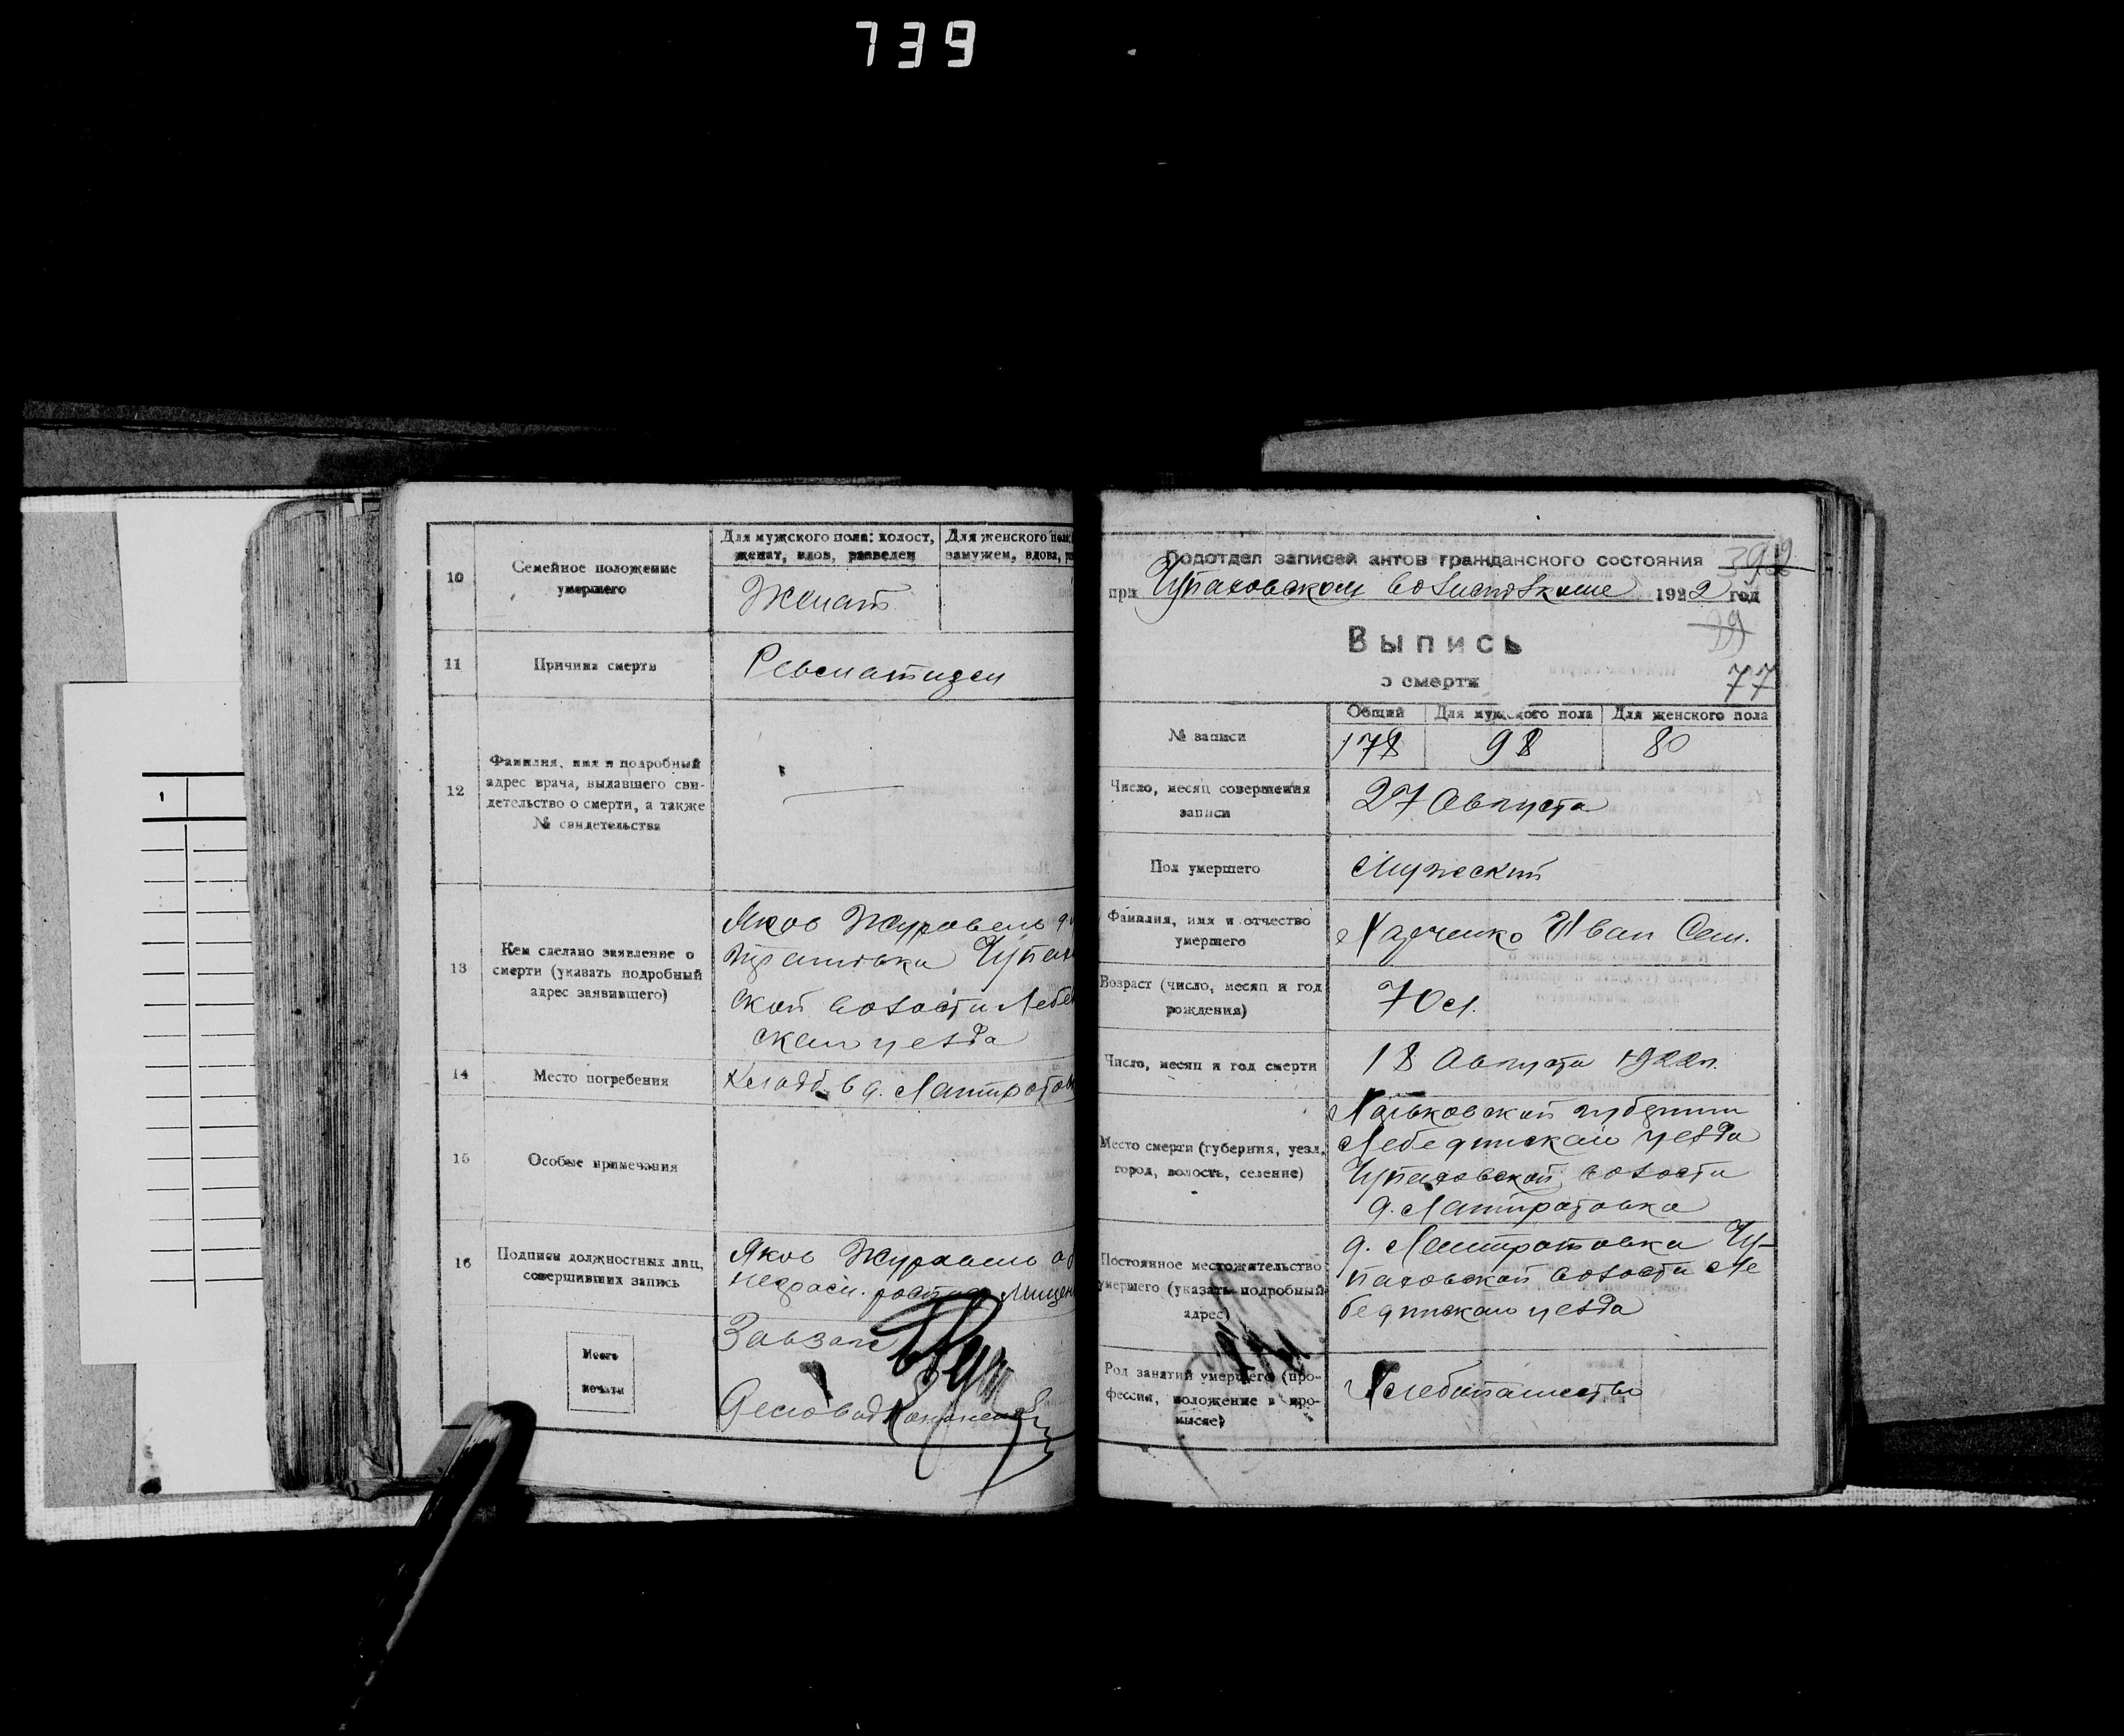 739
10
Семейное положение
умершего
Для мужского пола: холост,
женат, вдов, разведен
Для женского пола:
замужем, вдова,
Женат
11
Причина смерти
Ревматизм
12
Фамилия, имя и подробный
адрес врача, выдавшего сви-
детельство о смерти, а также
№ свидетельства
13
Кем сделано заявление о
смерти (указать подробный
адрес заявившего)
Яков Журавель
ской волости Лебе
скаго уезда
14
Место погребения
Кладб. в д.
15
Особые примечания
16
Подписи должностных лиц,
совершивших запись
Яков Журавель
Завзагс
Деловод
Место
печати
Подотдел записей актов гражданского состояния
при Чупаховском волисполкоме 1922 год
Выпись
о смерти
77
№ записи
Общий
Для мужского пола
Для женского пола
178
98
80
Число, месяц совершения
записи
27 Августа
Пол умершего
Мужеский
Фамилия, имя и отчество
умершего
Харченко Иван Сем.
Возраст (число, месяц и год
рождения)
70 л.
Число, месяц и год смерти
18 Августа 1922 г.
Место смерти (губерния, уезд,
город, волость, селение)
Харьковской губернии
Лебединскаго уезда
Чупаховской волости
Постоянное местожительство
умершего (указать подробный
адрес)
д. Чу-
паховской волости Ле
бединскаго уезда
Род занятий умершего (про-
фессия, положение в про-
мысле)
Хлебопашество